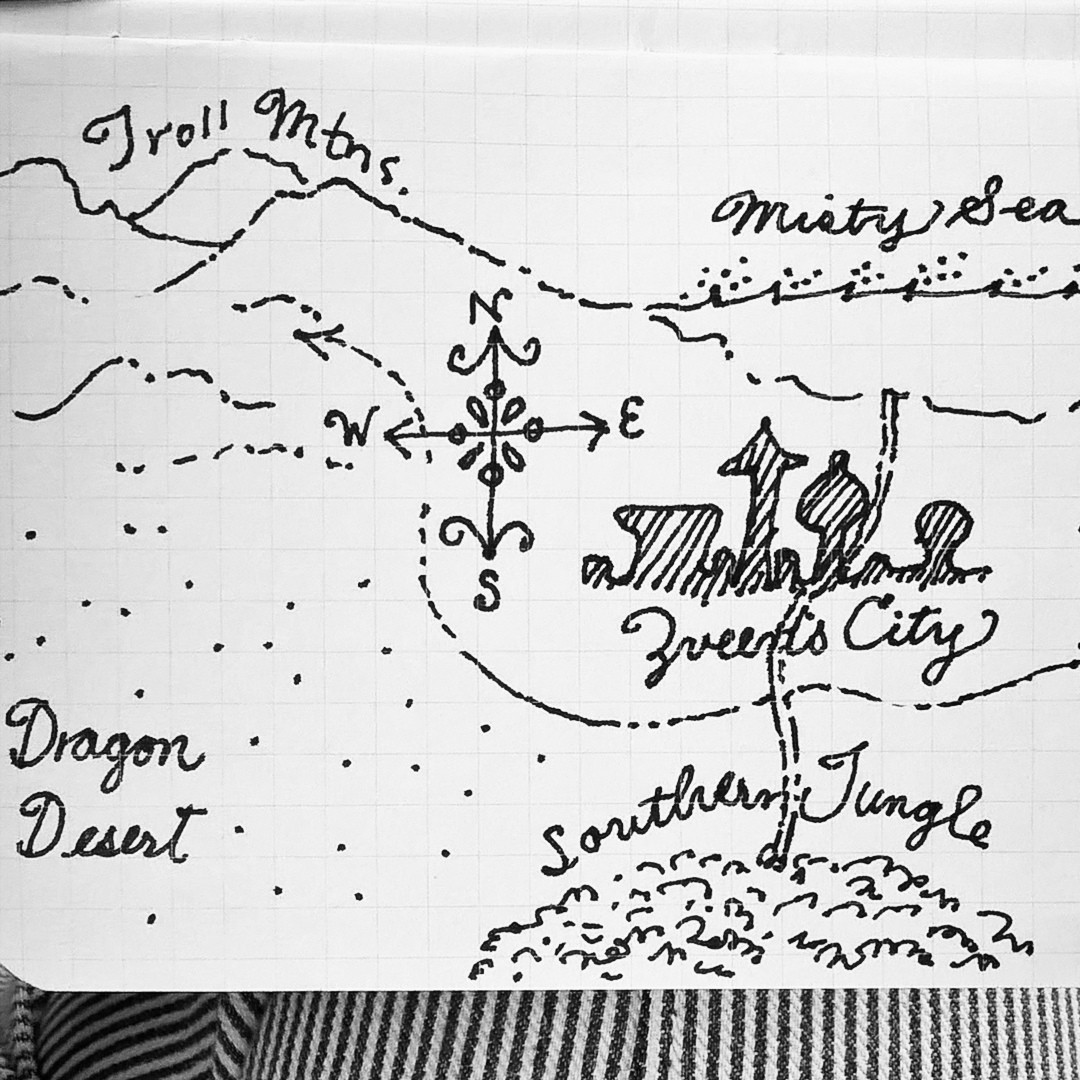 Troll Mtns.
Misty Sea
N
W
E
S
Queen's City
Dragon
Desert
Southern Jungle